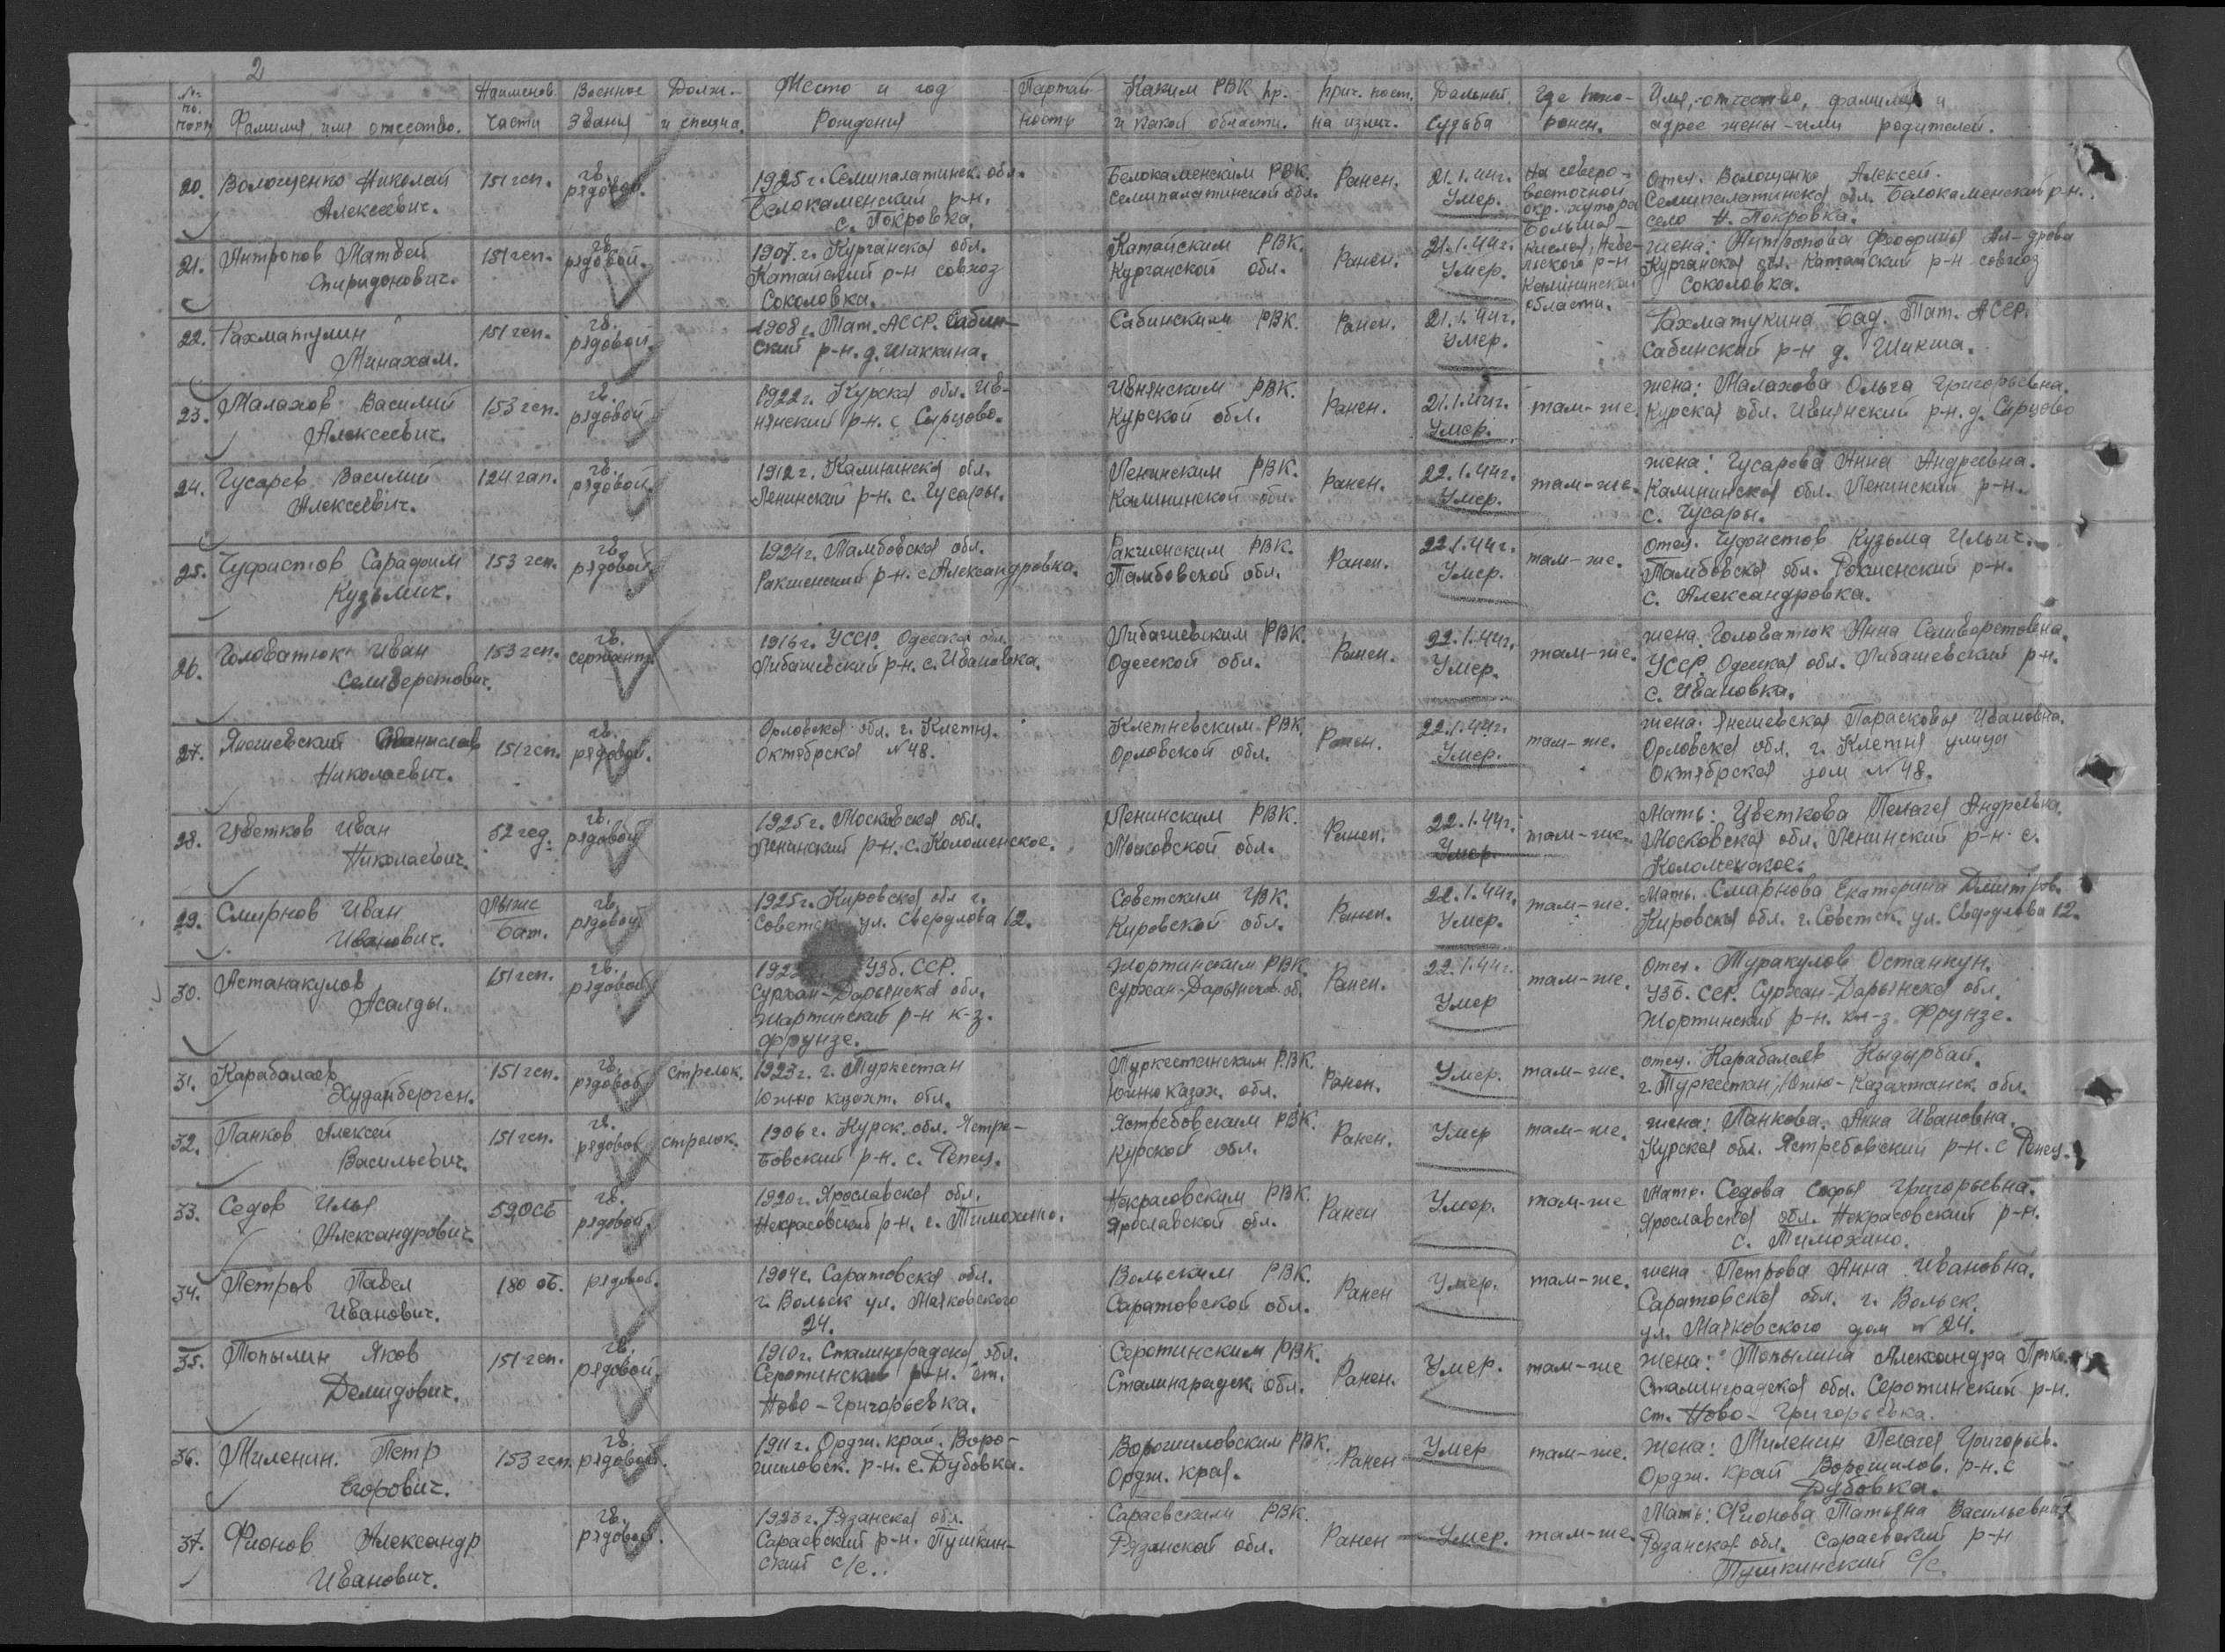 2
№ по пор. Фамилия имя отчество. Наименов. части Военное звания Должн. и специа. Место и год Рождения Партий ность Каким РВК пр. и какой области. Прич. пост. на излеч. Дальней. судьба Где похо- ронен. Имя, отчество, фамилия и адрес жены-или родителей.
20. Волощенко Николай Алексеевич. 151 гсп. гв. рядовой. 1925 г. Семипалатинск. обл. Белокаменский р-н. с. Покровка. Белокаменским РВК. Семипалатинской обл. Ранен. 21.1.44г. Умер. На северо- восточной окр. хутора Большая- отец. Волощенко Алексей. Семипалатинская обл. Белокаменский р-н. село Н. Покровка.
21. Антропов Матвей Спиридонович. 151 гсп. гв. рядовой. 1907 г. Курганская обл. Катайский р-н совхоз Соколовка. Катайским РВК. Курганской обл. Ранен. 21.1.44г. Умер. Неве- льского р-н Калининской области. жена: Антропова Курганская обл. Катайский р-н совхоз Соколовка.
22. Рахматулин Минахам. 151 гсп. гв. рядовой. 1908 г. Тат. АССР. Сабин- ский р-н. д. Шиккина. Сабинским РВК. Ранен. 21.1.44г. Умер. Рахматукина Бад. Тат. АССР. Сабинский р-н д. Шикша.
23. Малахов Василий Алексеевич. 153 гсп. гв. рядовой 1922 г. Курская обл. Ив- нянский р-н. с Сырцово. Ивнянским РВК. Курской обл. Ранен. 21.1.44г. Умер. там-же. жена: Малахова Ольга Григорьевна. Курская обл. Ивнянский р-н. д. Сырцово
24. Гусарев Василий Алексеевич. 124 гап. гв. рядовой. 1912 г. Калининская обл. Ленинский р-н. с. Гусары. Ленинским РВК. Калининской обл. Ранен. 22.1.44г. Умер. там-же. жена: Гусарева Анна Андреевна. Калининская обл. Ленинский р-н. с. Гусары.
25. Чуфистов Сарафим Кузьмич. 153 гсп. гв. рядовой 1924 г. Тамбовская обл. Ракшенский р-н. с. Александровка. Ракшенским РВК. Тамбовской обл. Ранен. 22.1.44г. Умер. там-же. отец. Чуфистов Кузьма Ильич. Тамбовская обл. Ракшенский р-н. с. Александровка.
26. Головатюк Иван Селиверстович. 153 гсп. гв. сержант. 1916 г. УССР. Одесская обл. Либашевский р-н. с. Ивановка. Либашевским РВК. Одесской обл. Ранен. 22.1.44г. Умер. там-же. жена. Головатюк Анна Селиверстовна. УССР. Одесская обл. Либашевский р-н. с. Ивановка.
27. Янешевский Станислав Николаевич. 151 гсп. гв. рядовой. Орловская обл. г. Клетня. Октябрская №48. Клетневским РВК Орловской обл. Ранен. 22.1.44г. Умер. там-же. жена. Янешевская Парасковья Ивановна. Орловская обл. г. Клетня улица Октябрская дом №48.
28. Цветков Иван Николаевич. 52 гсд. гв. рядовой 1925 г. Московская обл. Ленинский р-н. с. Коломенское. Ленинским РВК. Московской обл. Ранен. 22.1.44г. Умер. там-же. Мать: Цветкова Пелагея Андреевна. Московская обл. Ленинский р-н. с. Коломенское.
29. Смирнов Иван Иванович. Лыжс бат. гв. рядовой 1925 г. Кировская обл г. Советск ул. Свердлова 12. Советским РВК. Кировской обл. Ранен. 22.1.44г. Умер. там-же. Мать. Смирнова Екатерина Дмитров. Кировская обл. г. Советск. ул. Свердлова 12.
30. Астанакулов Асалды. 151 гсп. гв. рядовой Узб. ССР. Сурхан-Дарьинская обл. Шартинский р-н к-з. Фрунзе. Шортинским РВК. Сурхан-Дарьинской об. Ранен. 22.1.44г. Умер там-же. отец. Туракулов Останкун. Узб. ССР. Сурхан-Дарьинская обл. Шортинский р-н. кл-з Фрунзе.
31. Карабалаев Худайберген. 151 гсп. гв. рядовой стрелок. 1923 г. г. Туркестан Южно казахт. обл. Туркестанским РВК Южно казах. обл. Ранен. Умер. там-же. отец. Карабалаев Кыдырбай. г. Туркестан, Южно-Казахтанск обл.
32. Панков Алексей Васильевич. 151 гсп. гв. рядовой стрелок. 1906 г. Курск. обл. Ястре- бовский р-н. с. Репец. Ястребовским РВК. Курской обл. Ранен. Умер там-же. жена: Панкова. Анна Ивановна. Курская обл. Ястребовский р-н. с Репец.
33. Седов Илья Александрович. 590сб гв. рядовой 1920 г. Ярославская обл. Некрасовский р-н. с. Тимохино. Некрасовским РВК. Ярославской обл. Ранен Умер. там-же Мать. Седова Софья Григорьевна. Ярославская обл. Некрасовский р-н. с. Тимохино.
34. Петров Павел Иванович. 180 об. рядовой. 1904 г. Саратовская обл. г. Вольск ул. Маяковского 24. Вольским РВК. Саратовской обл. Ранен Умер. там-же. жена Петрова Анна Ивановна. Саратовская обл. г. Вольск. ул. Маяковского дом № 24.
35. Топылин Яков Демидович. 151 гсп. гв. рядовой. 1910 г. Сталинградская обл. Серотинский р-н. ст. Ново-Григорьевка. Серотинским РВК. Сталинградск. обл. Ранен. Умер. там-же жена: Топылина Александра Сталинградская обл. Серотинский р-н. Ст. Ново-Григорьевка.
36. Миленин. Петр Егорович. 153 гсп. гв. рядовой. 1911 г. Ордж. край. Воро- шиловск. р-н. с. Дубовка. Ворошиловским РВК. Ордж. края. Ранен Умер там-же. жена: Миленин Пелагея Григорьев. Ордж. край Ворошилов. р-н. с Дубовка.
37. Фионов Александр Иванович. гв. рядовой. 1923 г. Рязанская обл. Сараевский р-н. Пушкин- ский с/с. Сараевским РВК. Рязанской обл. Ранен Умер. там-же. Мать: Фионова Татьяна Васильевна. Рязанская обл. Сараевский р-н Пушкинский с/с.